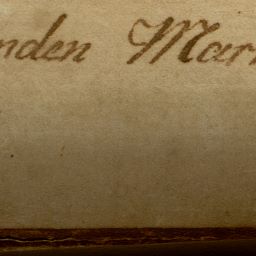 nden Mar